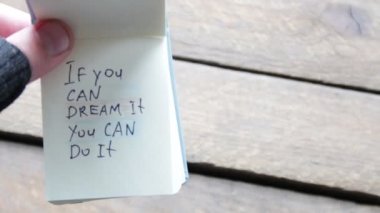 If you
CAN
DREAM It
YOU CAN
Do It